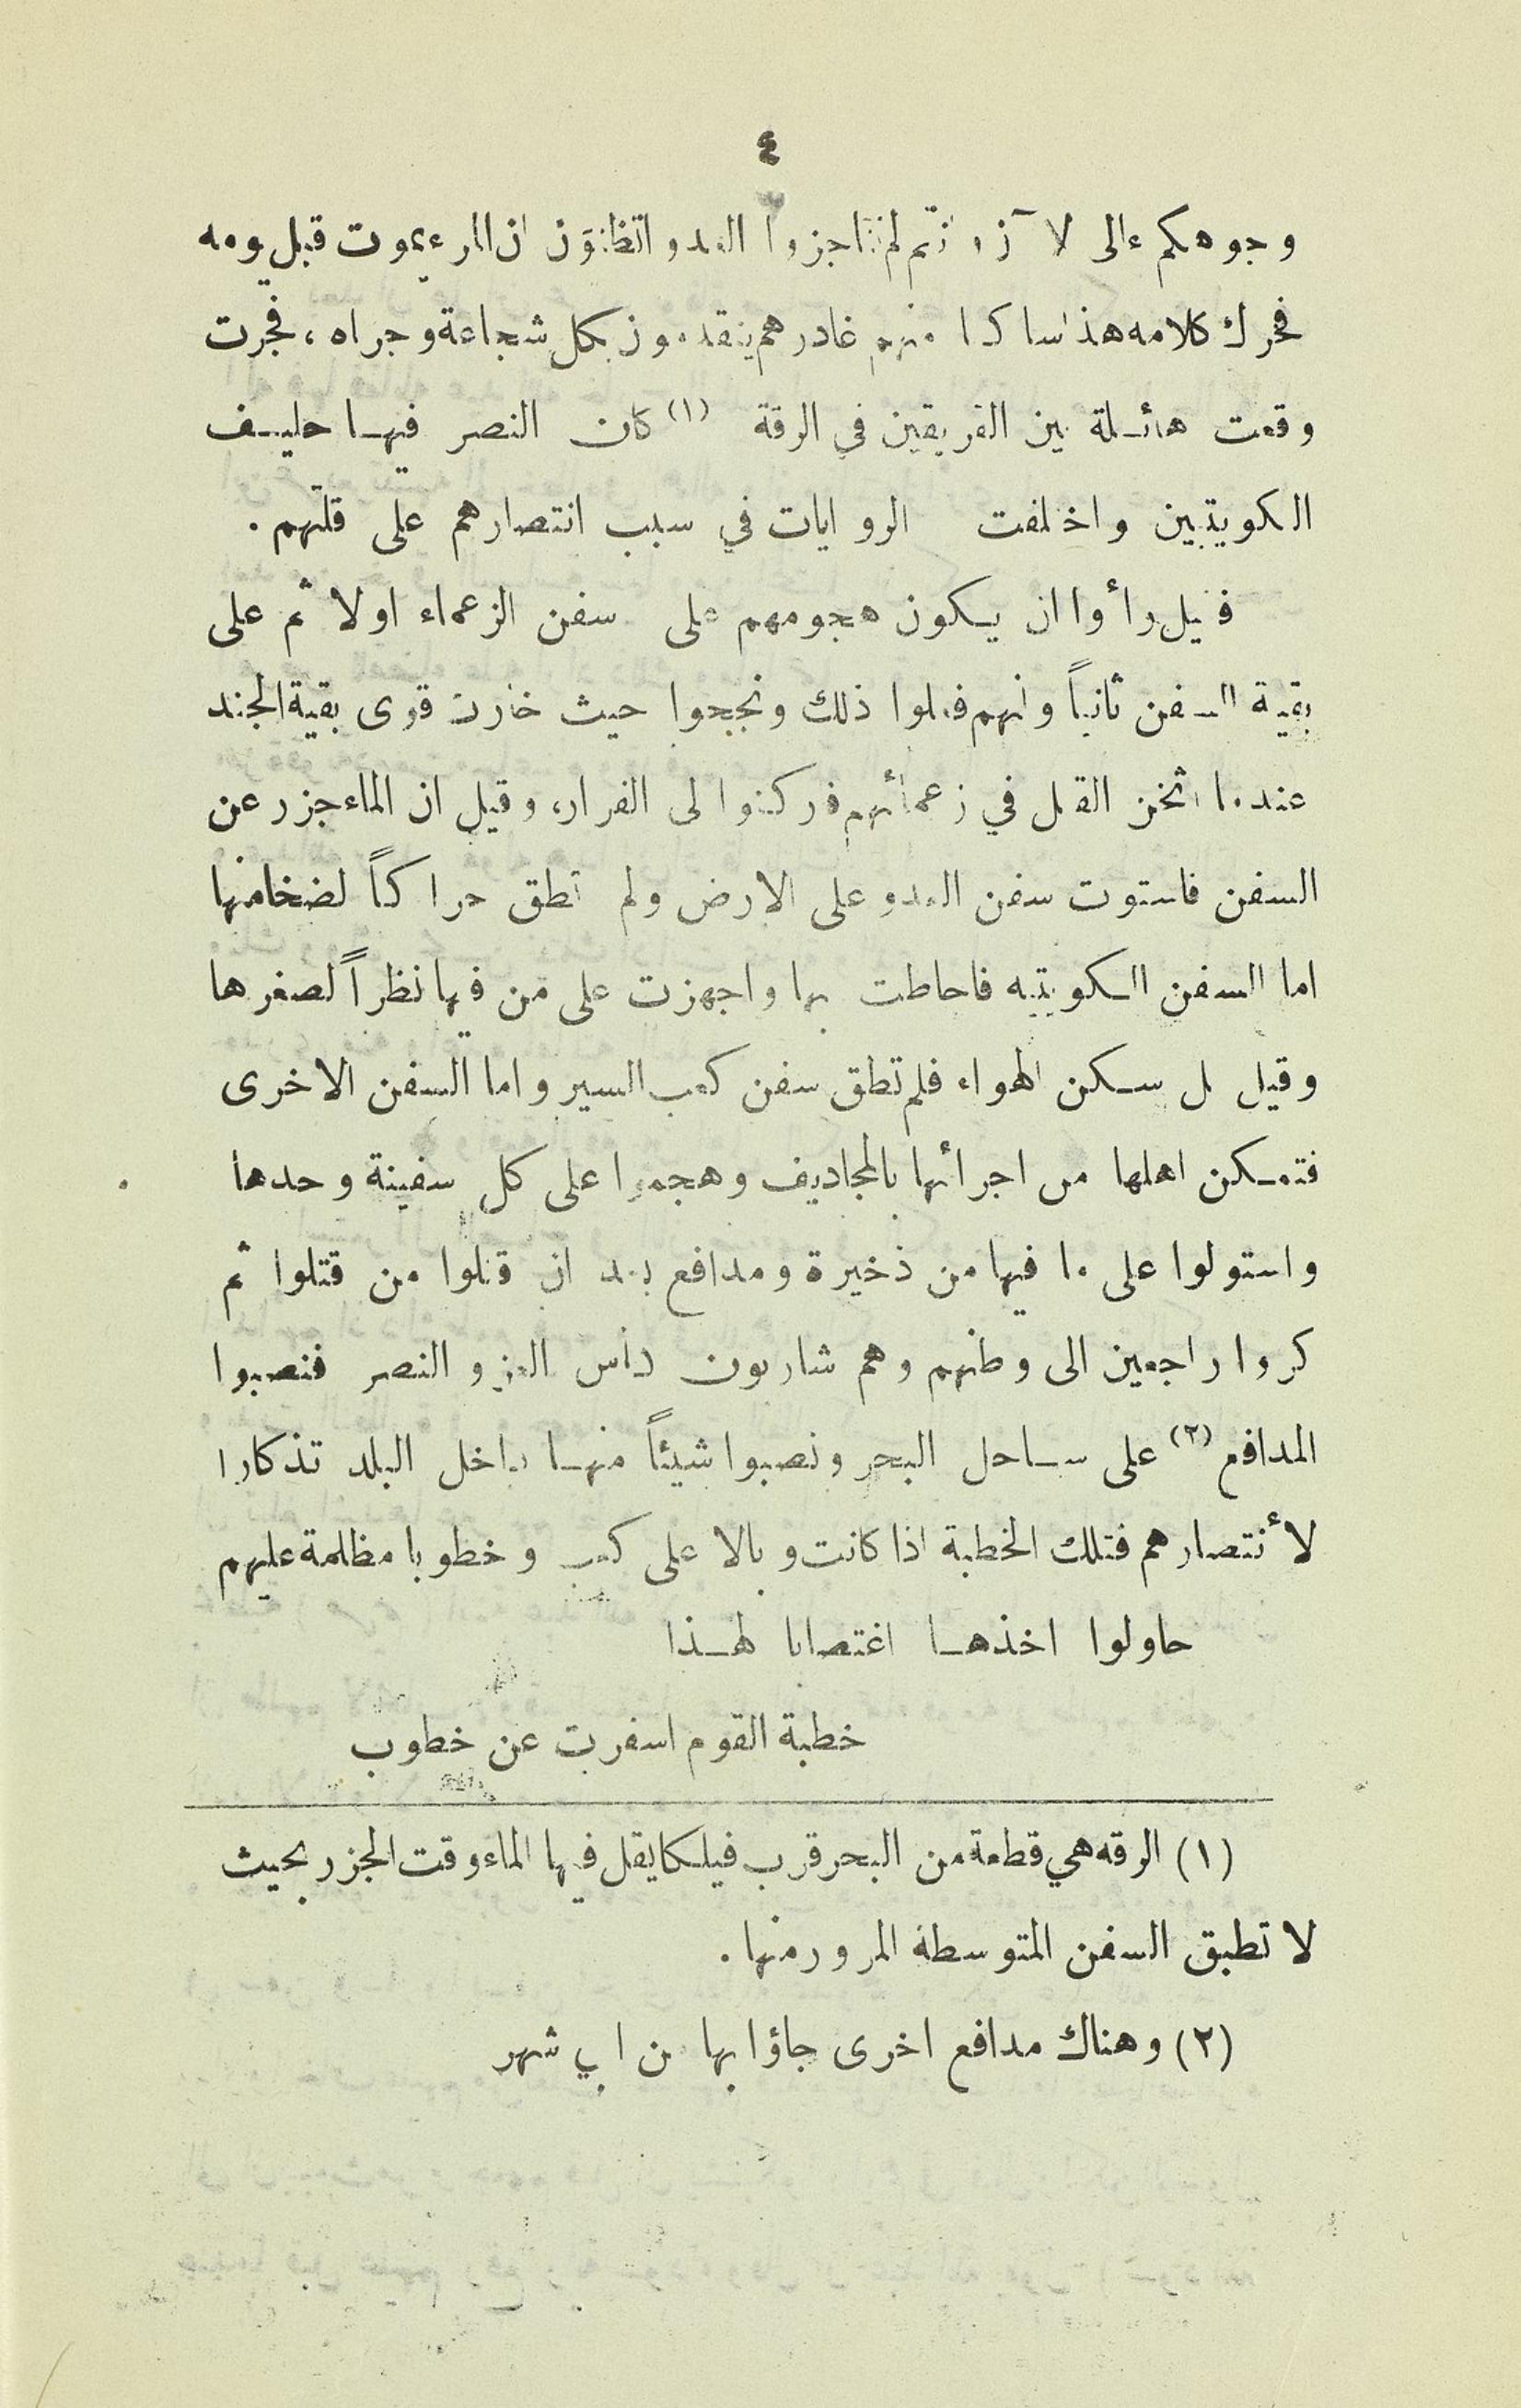 ٤
وجوهكم الى الآن وانتم لم تناجزوا العدو اتظنون ان المرء يموت قبل يومه
فحرك كلامه هذا ساكنا منهم غادرهم يتقدمون بكل شجاعة وجراه ، فجرت
وقعت هائلة بين الفريقين في الرقة (١) كان النصر فيها حليف
الكويتيين واختلفت الروايات في سبب انتصارهم على قلتهم .
فقيل رأوا ان يكون هجومهم على سفن الزعماء اولا ثم على
بقية السفن ثانياً وانهم فعلوا ذلك ونجحوا حيث خارت قوى بقية الجند
عندما اثخن القتل في زعمائهم فركنوا الى الفرار، وقيل ان الماء جزر عن
السفن فاستوت سفن العدو على الارض ولم تطق حراكاً لضخامتها
اما السفن الكويتيه فاحاطت بها واجهزت على من فيها نظراً لصغرها
وقيل بل سكن الهواء فلم تطق سفن كعب السير واما السفن الاخرى
فتمكن اهلها من اجرائها بالمجاديف وهجموا على كل سفينة وحدها
واستولوا على ما فيها من ذخيرة ومدافع بعد ان قتلوا من قتلوا ثم
كروا راجعين الى وطنهم وهم شاربون كأس العز والنصر فنصبوا
المدافع (٢) على ساحل البحر ونصبوا شيئاً منها داخل البلد تذكارا
لأنتصارهم فتلك الخطبة اذا كانت وبالا على كعب وخطوبا مظلمة عليهم
حاولوا اخذها اغتصابا لهذا
خطبة القوم اسفرت عن خطوب
(١) الرقه هي قطعة من البحر قرب فيلكا يقل فيها الماء وقت الجزر بحيث
لا تطيق السفن المتوسطة المرور منها .
(٢) وهناك مدافع اخرى جاؤا بها من ابي شهر